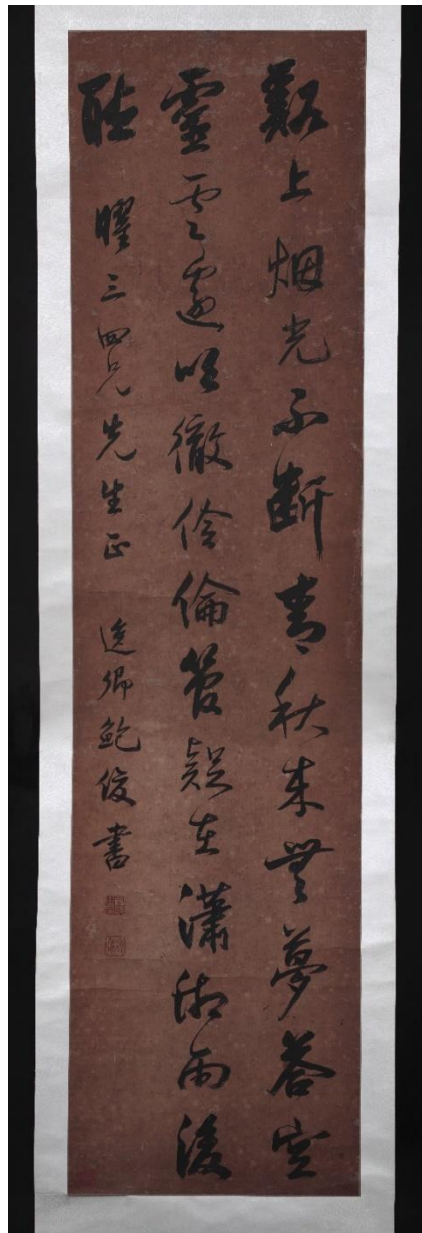 谿上烟光不斷青秋来無夢荅空
靈雲邊吹徹伶倫管疑在瀟湘雨後
聽 曜三四兄先生正 逸卿鮑俊書